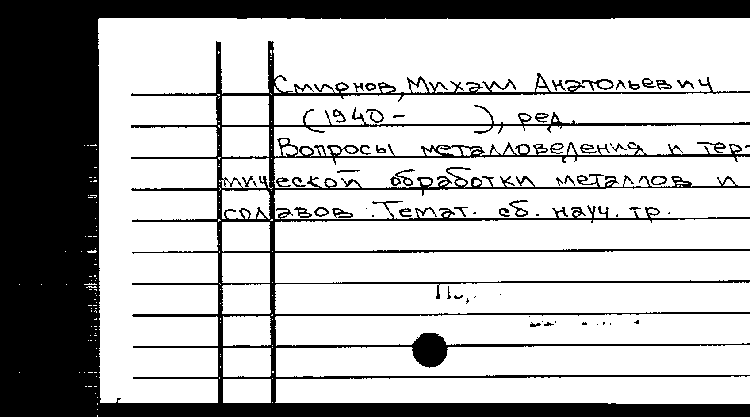 Смирнов, Михаил Анатольевич
(1940-      ), ред.
Вопросы металловедения и тер-
мической обработки металлов и
сплавов. Темат. сб. науч. тр.